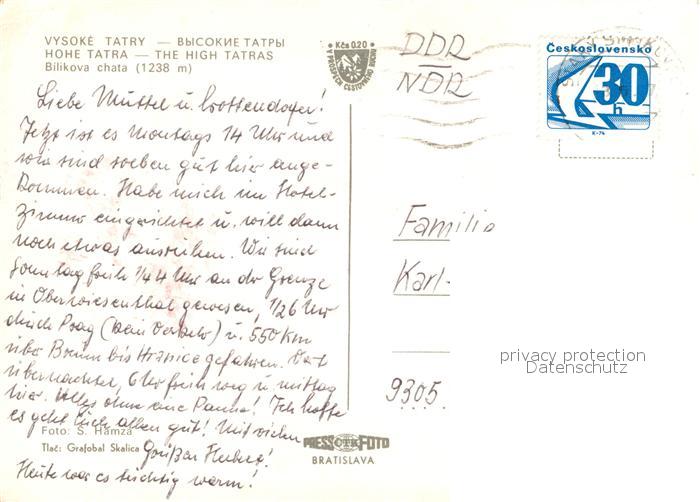 VYSOKÉ TATRY — ВЫСОКИЕ ТАТРЫ
HOHE TATRA — THE HIGH TATRAS
Bilíkova chata (1238 m)
Kčs 0,20
Liebe Muttel u. Crottendorfer!
Jetzt ist es Montags 14 Uhr und
wir sind soeben gut hier ange-
kommen. Habe mich im Hotel-
zimmer eingerichtet u. will dann
noch etwas ausruhen. Wir sind
Sonntag früh 1/4 4 Uhr an der Grenze
in Oberwiesenthal gewesen, 1/2 6 Uhr
durch Prag (kein Verkehr) u. 550 km
über Brünn bis gefahren. Dort
übernachtet, 6 Uhr früh weg u. mittag
hier. Alles ohne eine Panne! Ich hoffe
es geht Euch allen gut! Mit vielen
Grüßen Herbert!
Heute war es tüchtig warm!
Foto: S. Hamza
Tlač: Grafobal Skalica
PRESSFOTO
BRATISLAVA
DDR
NDR
Československo
30
h
K-74
Familie
Karl-
9305
privacy protection
Datenschutz